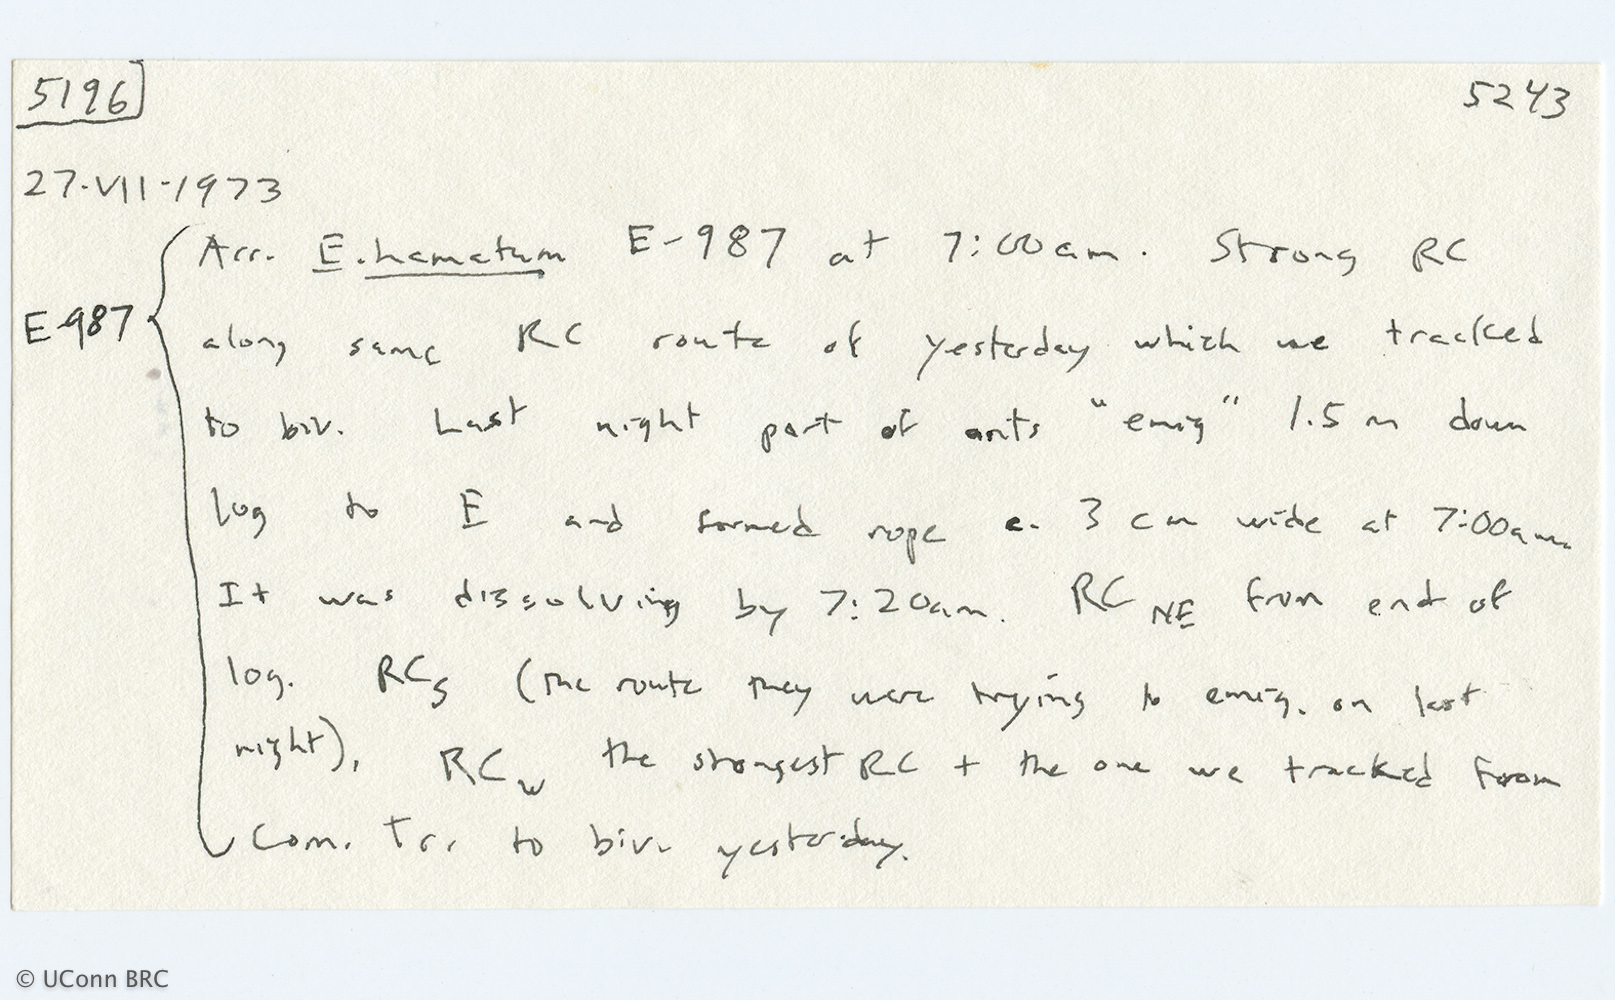 5196
5243
27-VII-1973
E-987
Arr. E. hamatum E-987 at 7:00am. Strong RC
along same RC route of yesterday which we tracked
to biv. Last night part of ants "emig" 1.5 m down
log to E and formed rope c. 3 cm wide at 7:00am.
It was dissolving by 7:20am. RC NE from end of
log. RC S (the route they were trying to emig. on last
night), RC W the strongest RC + the one we tracked from
Com. Tr. to biv. yesterday.
© UConn BRC